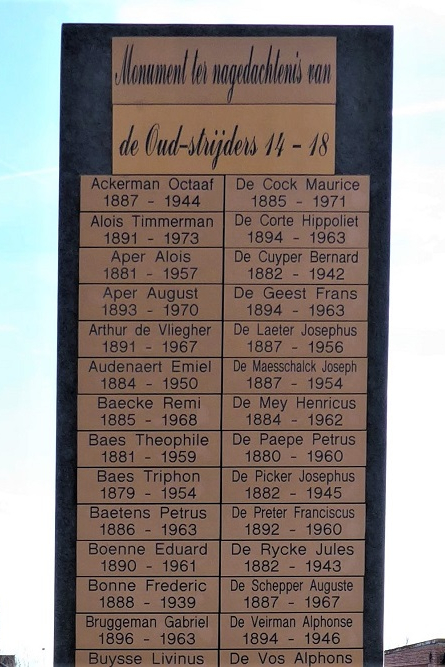 Monument ter nagedachtenis van
de Oud-strijders 14 - 18
Ackerman Octaaf
1887 - 1944
Alois Timmerman
1891 - 1973
Aper Alois
1881 - 1957
Aper August
1893 - 1970
Arthur de Vliegher
1891 - 1967
Audenaert Emiel
1884 - 1950
Baecke Remi
1885 - 1968
Baes Theophile
1881 - 1959
Baes Triphon
1879 - 1954
Baetens Petrus
1886 - 1963
Boenne Eduard
1890 - 1961
Bonne Frederic
1888 - 1939
Bruggeman Gabriel
1896 - 1963
Buysse Livinus
De Cock Maurice
1885 - 1971
De Corte Hippoliet
1894 - 1963
De Cuyper Bernard
1882 - 1942
De Geest Frans
1894 - 1963
De Laeter Josephus
1887 - 1956
De Maesschalck Joseph
1887 - 1954
De Mey Henricus
1884 - 1962
De Paepe Petrus
1880 - 1960
De Picker Josephus
1882 - 1945
De Preter Franciscus
1892 - 1960
De Rycke Jules
1882 - 1943
De Schepper Auguste
1887 - 1967
De Veirman Alphonse
1894 - 1946
De Vos Alphons